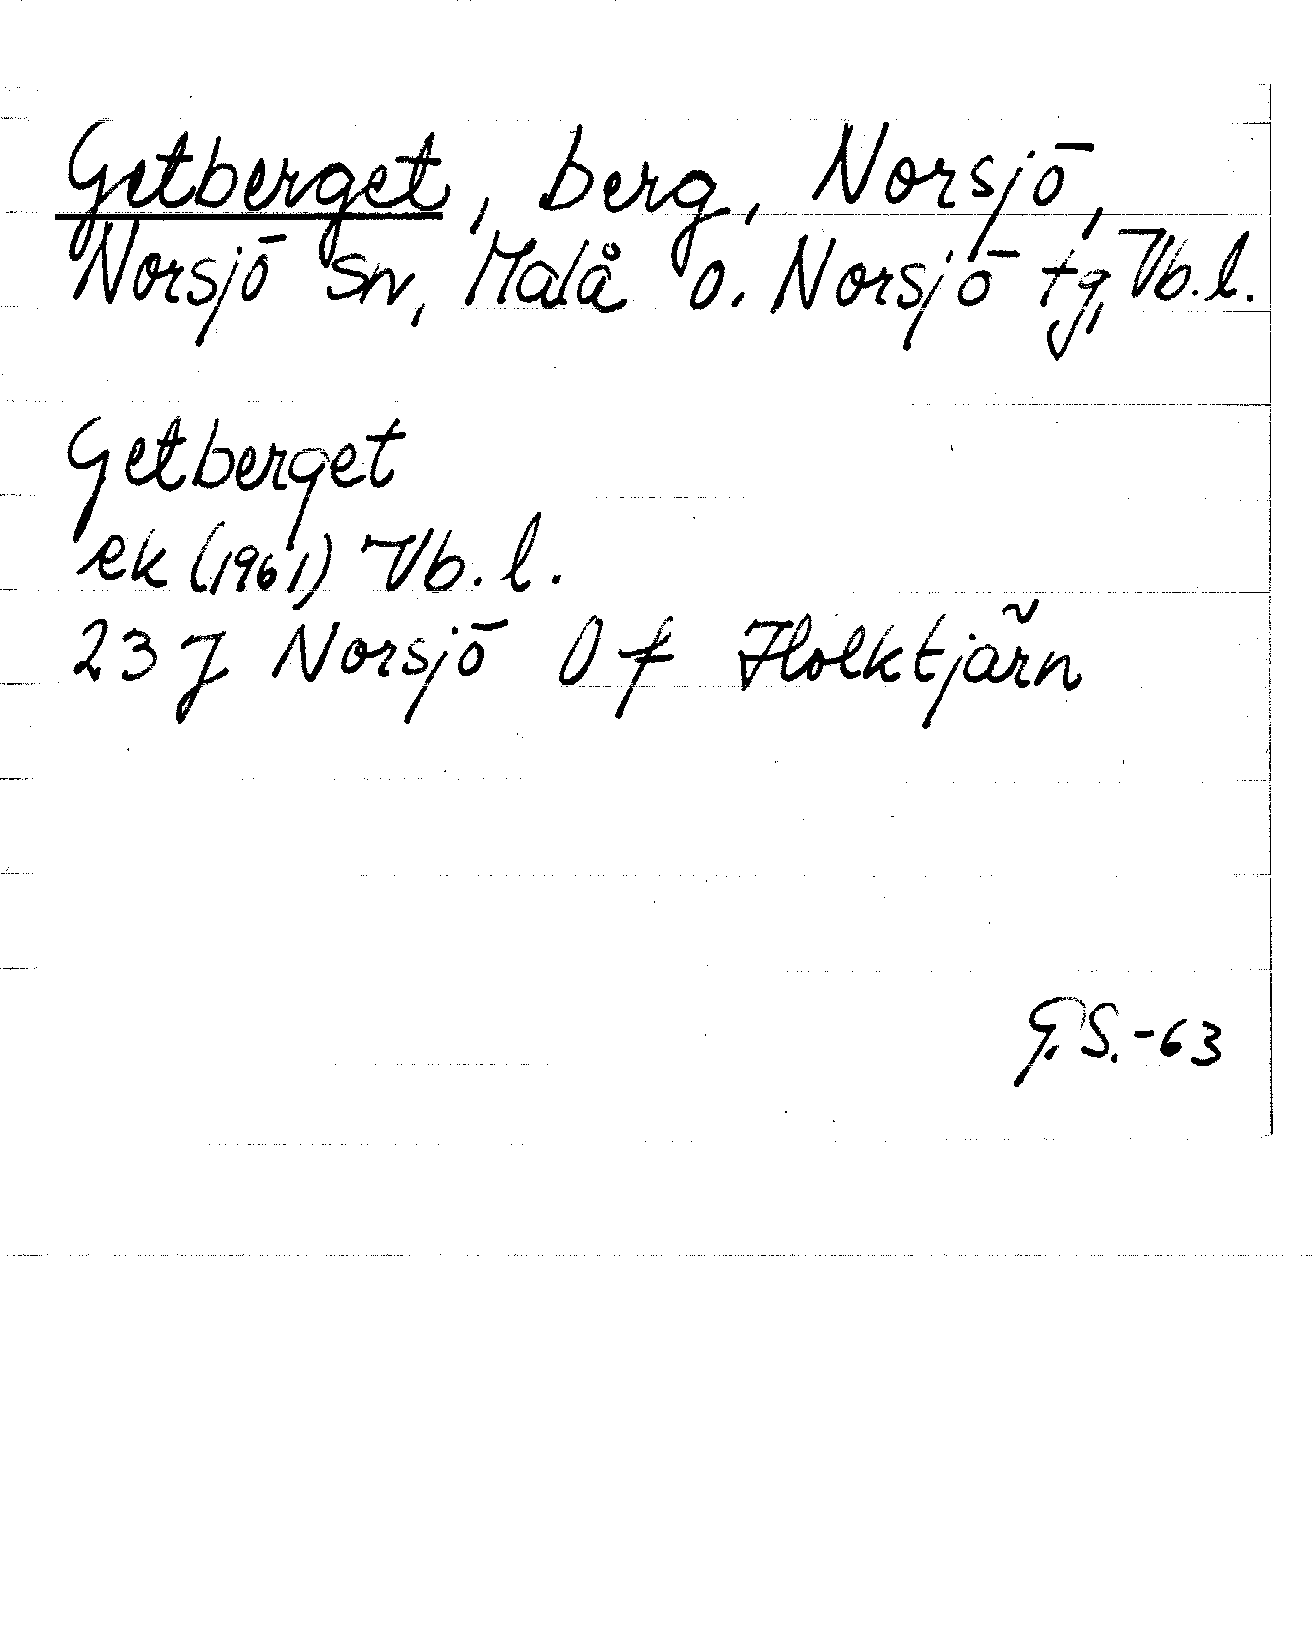 Getberget, berg, Norsjö,
Norsjö sn, Malå o. Norsjö tg, Vb. l.
Getberget
ek (1961) Vb. l.
23 J Norsjö 0 f Holktjärn
G. S. -63